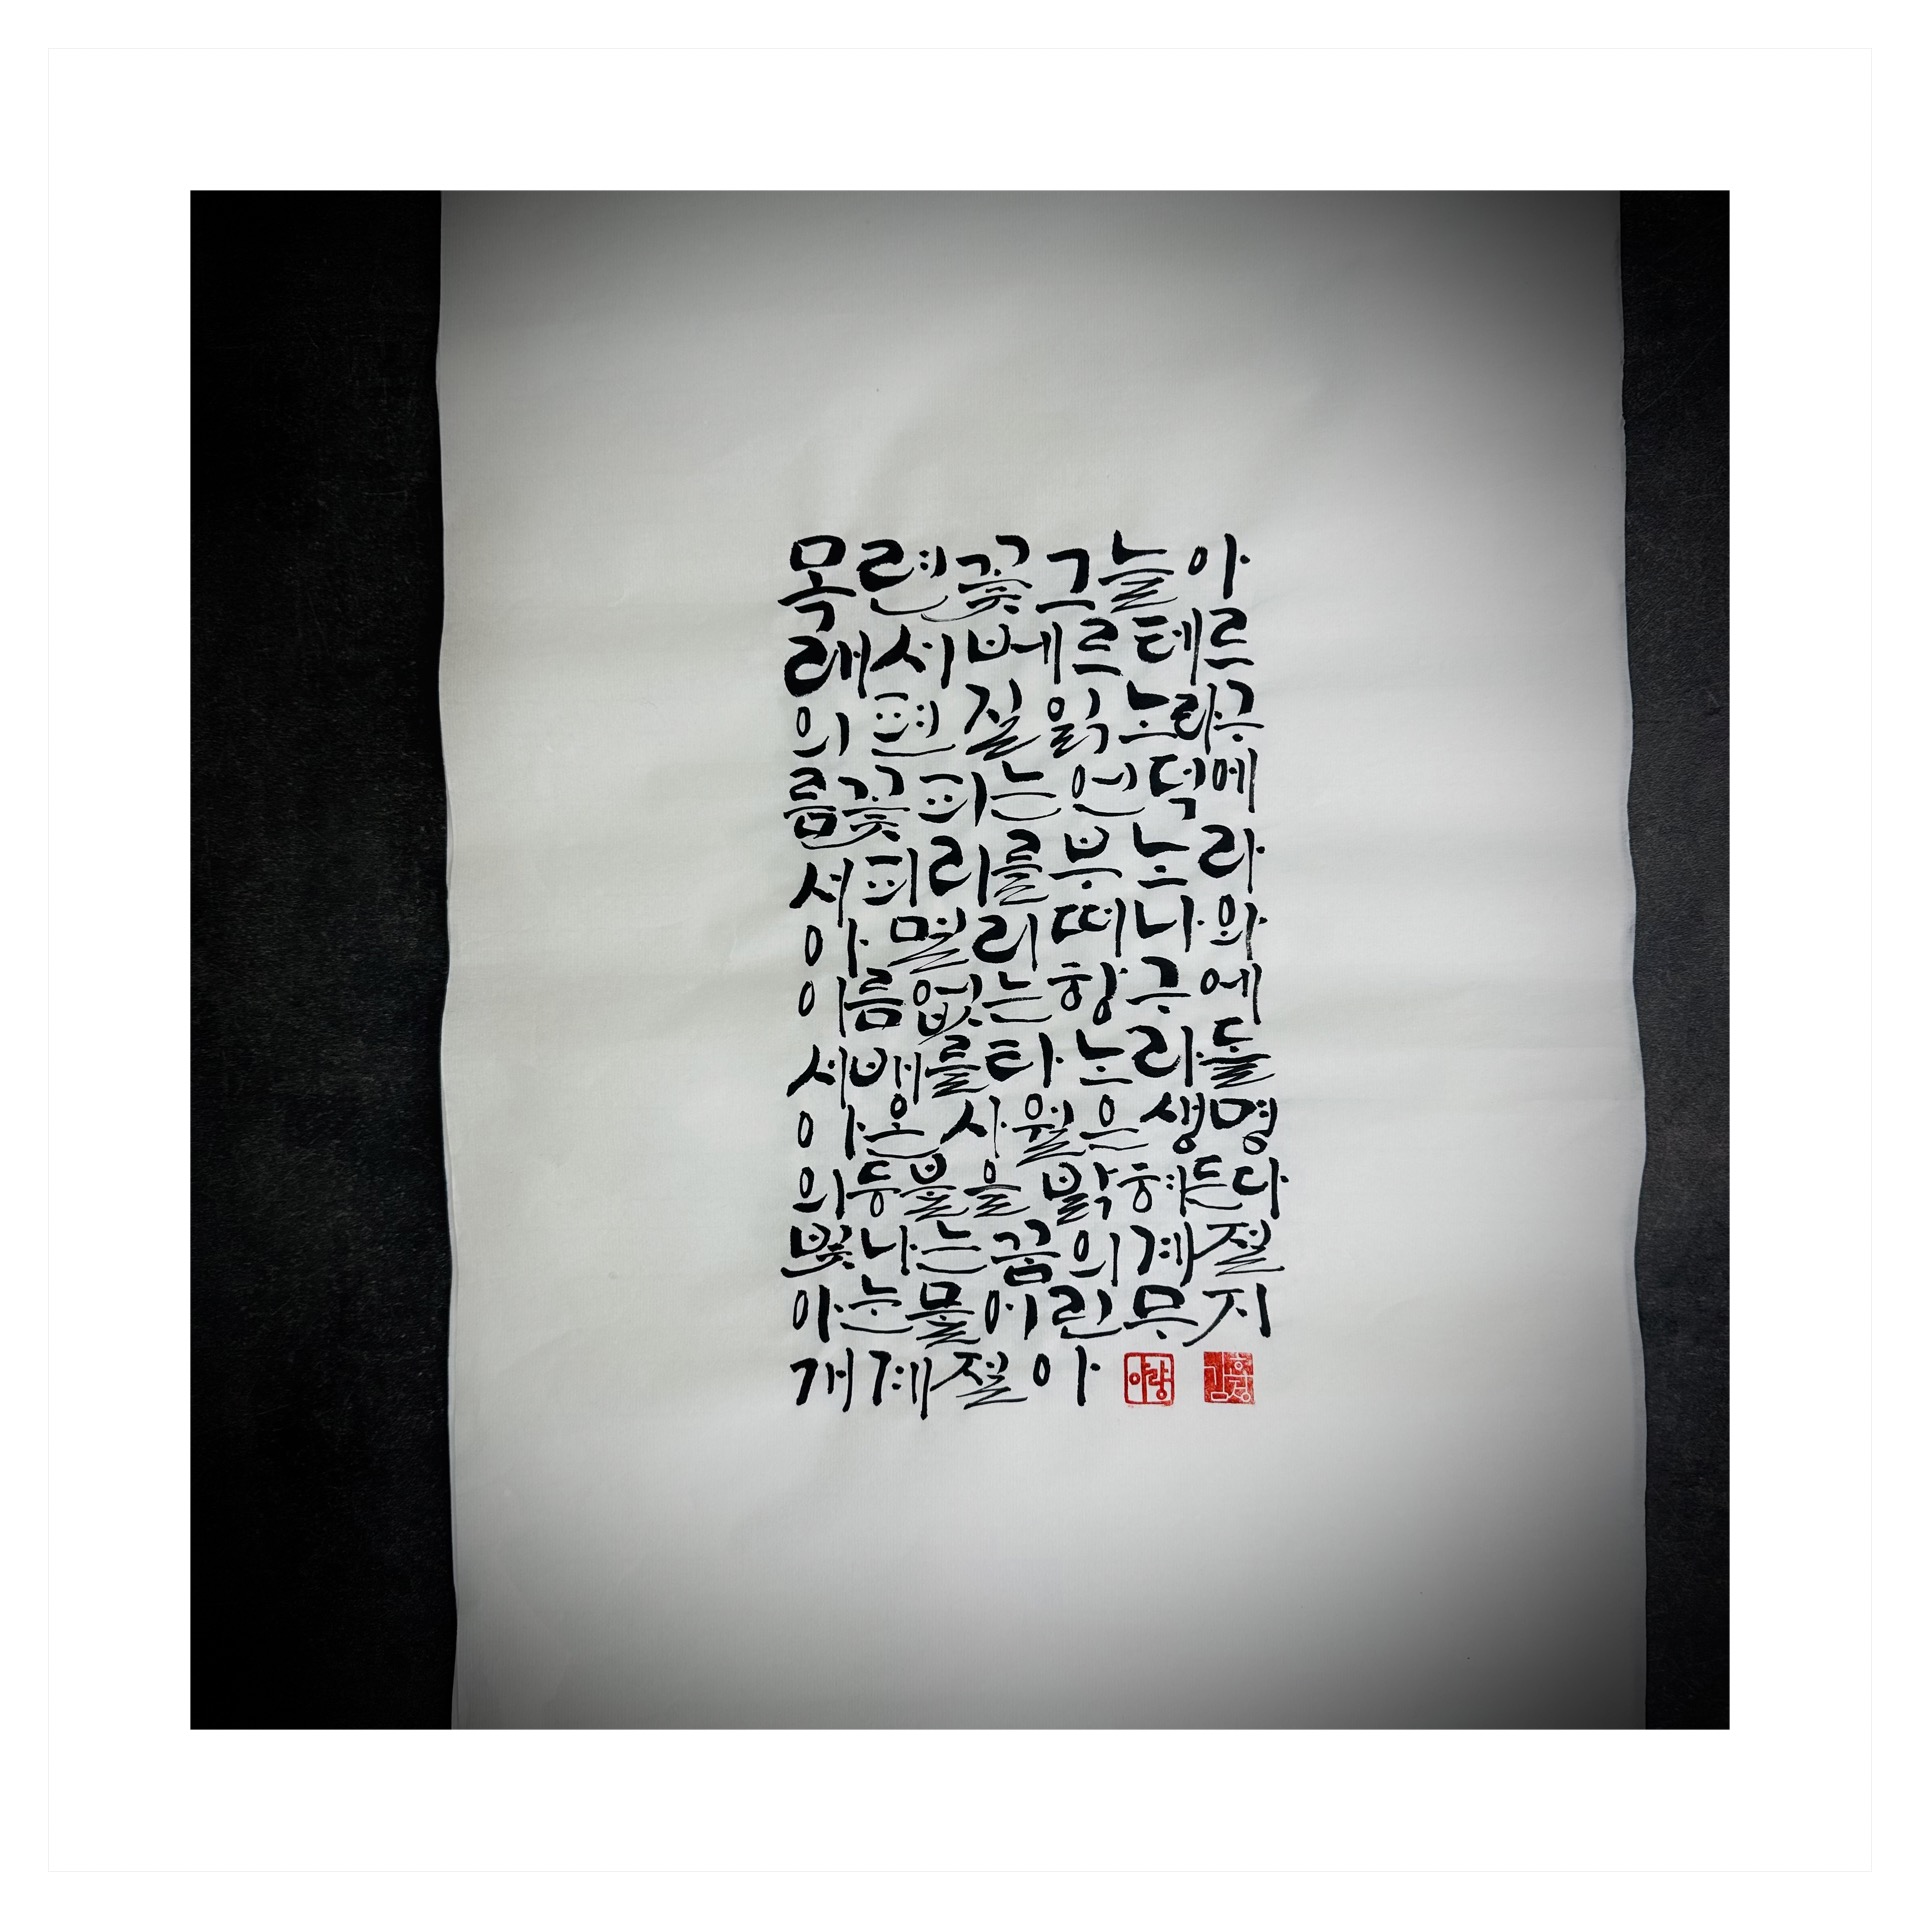 목련꽃그늘아
래서베르테르
의편질읽노라구
름꽃피는언덕에
서피리를부노라
아 멀리떠나와
이름없는항구에
서배를타노라돌
아온사월은생명
의등불을 밝혀든다
빛나는꿈의계절
아눈물어린무지
개계절아